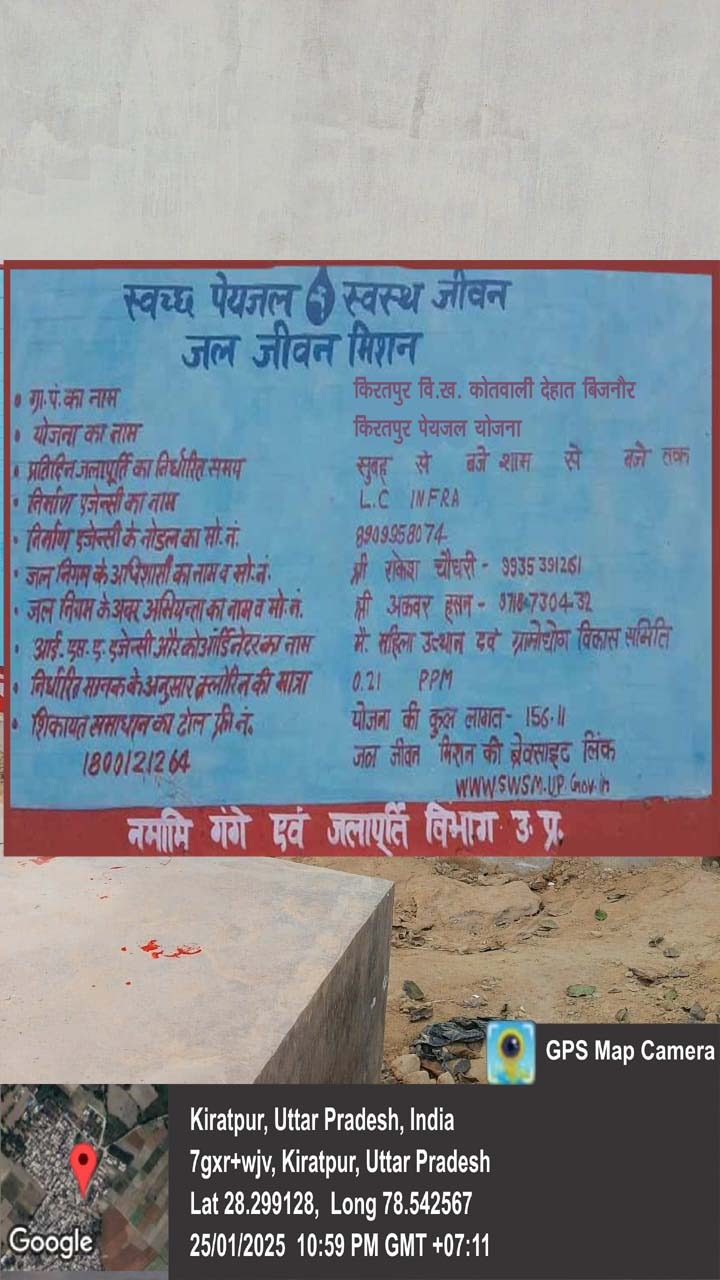 स्वच्छ पेयजल स्वस्थ जीवन
जल जीवन मिशन
• ग्रा.पं.का नाम किरतपुर वि.ख. कोतवाली देहात बिजनौर
• योजना का नाम किरतपुर पेयजल योजना
• प्रतिदिन जलापूर्ति का निर्धारित समय सुबह से बजे शाम से बजे तक
• निर्माण एजेन्सी का नाम L.C INFRA
• निर्माण एजेन्सी के नोडल का मो.नं. 8909958074
• जल निगम के अधिशासी का नाम व मो.नं. श्री राकेश चौधरी - 9935391261
• जल निगम के अवर अभियन्ता का नाम व मो.नं. श्री अकवर हसन - 0718-7304-32
• आई.एस.ए. एजेन्सी और कोऑर्डिनेटर का नाम मै. महिला उत्थान एवं ग्रामोद्योग विकास समिति
• निर्धारित मानक के अनुसार क्लोरिन की मात्रा 0.21 PPM
• शिकायत समाधान का टोल फ्री नं. योजना की कुल लागत - 156.11
1800121264 जल जीवन मिशन की वेबसाइट लिंक
WWW.SWSM.UP.Gov.in
नमामि गंगे एवं जलापूर्ति विभाग उ.प्र.
GPS Map Camera
Kiratpur, Uttar Pradesh, India
7gxr+wjv, Kiratpur, Uttar Pradesh
Lat 28.299128, Long 78.542567
25/01/2025 10:59 PM GMT +07:11
Google